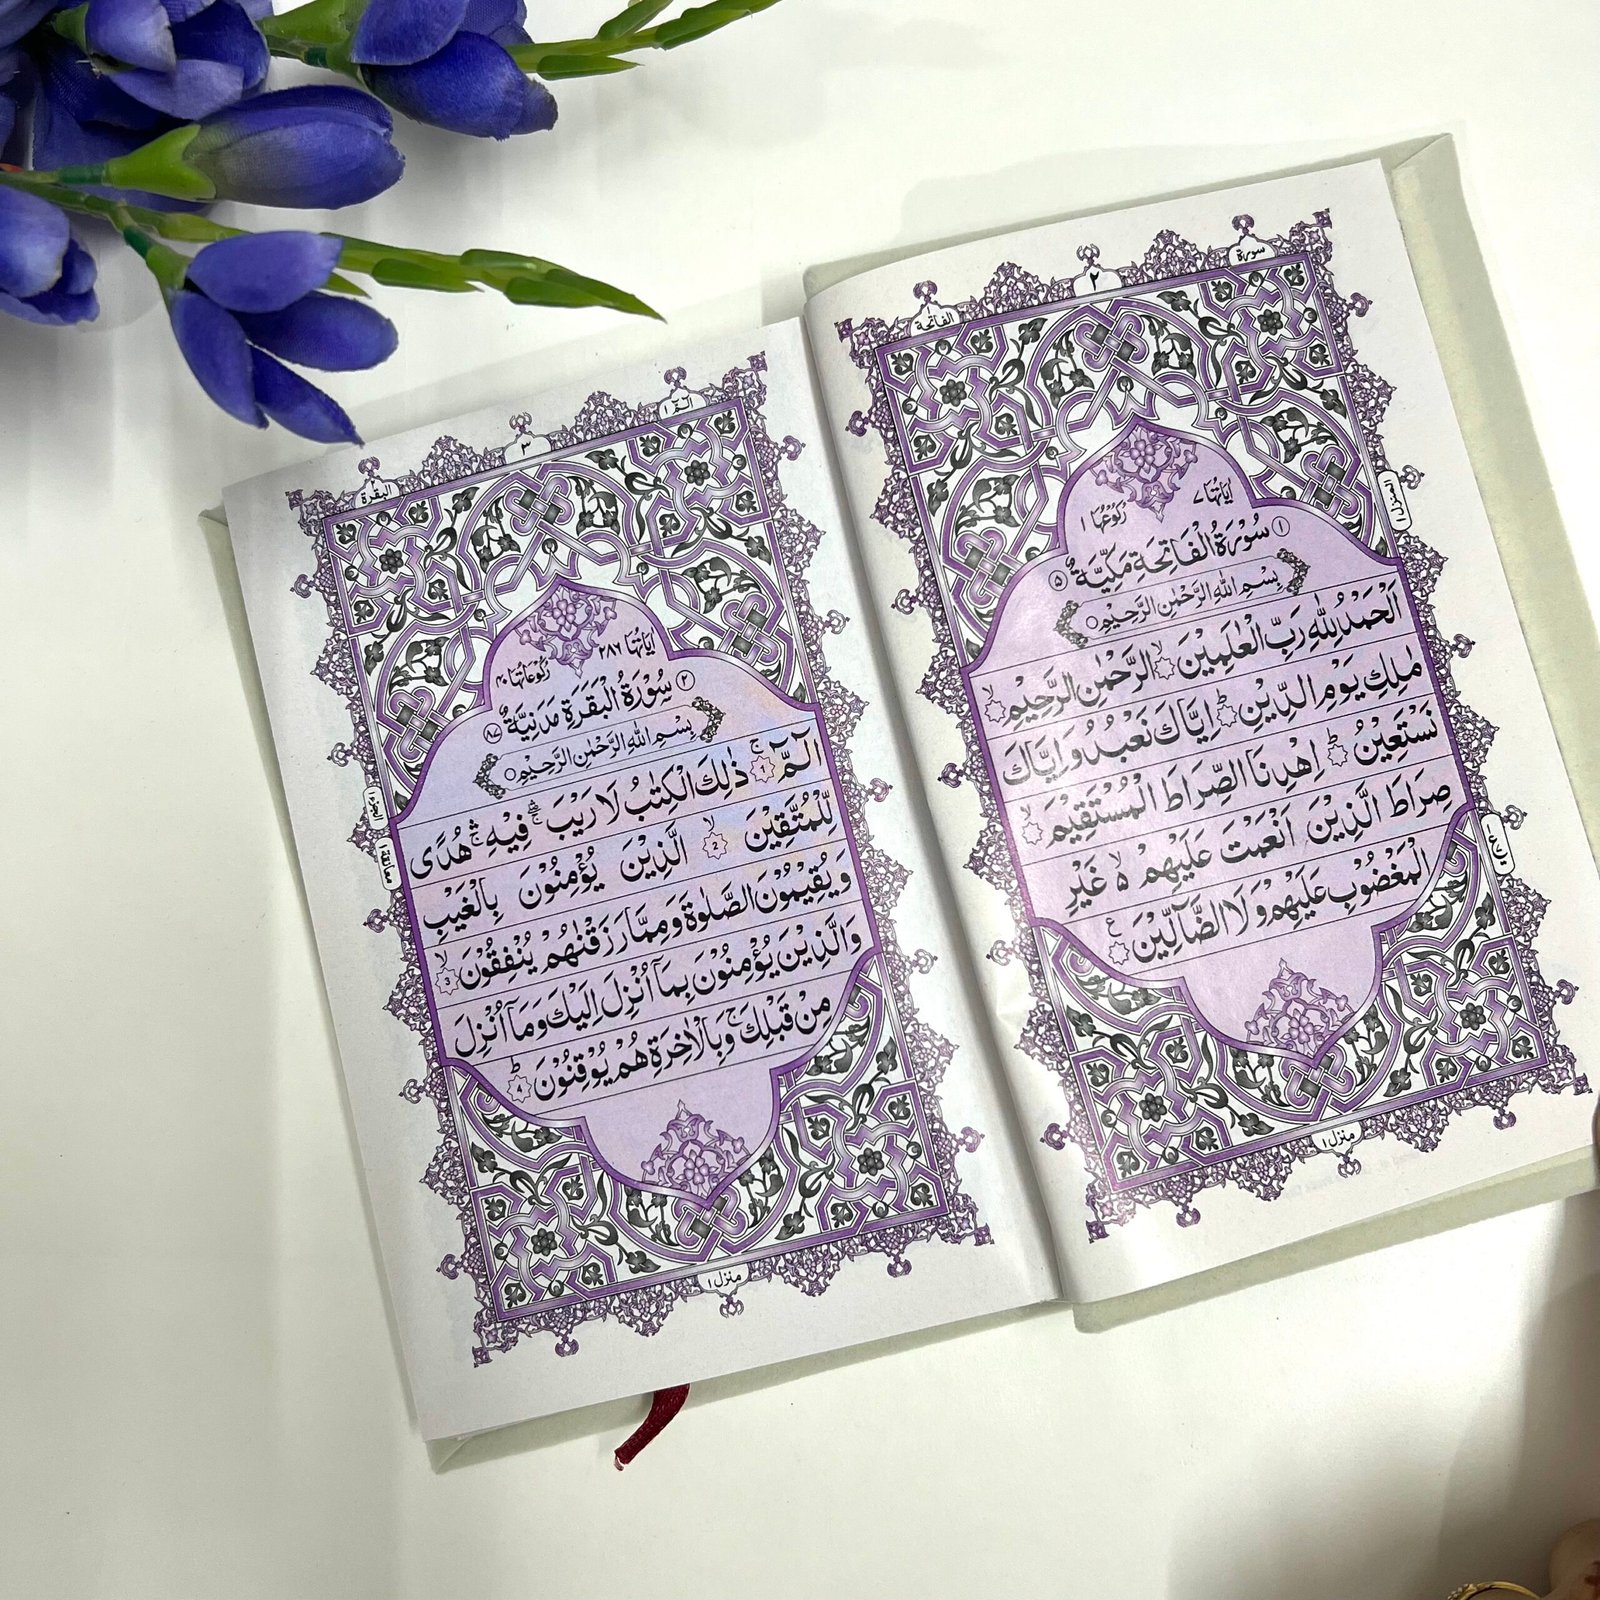 سورة
٢
الفاتحة
اٰیَاتُهَا ٧
رُكُوْعُهَا ١
١ سُوْرَةُ الْفَاتِحَةِ مَكِّيَّةٌ ٥
بِسْمِ اللّٰهِ الرَّحْمٰنِ الرَّحِيْمِ
اَلْحَمْدُ لِلّٰهِ رَبِّ الْعٰلَمِيْنَ ۙ الرَّحْمٰنِ الرَّحِيْمِ ۙ
مٰلِكِ يَوْمِ الدِّيْنِ ؕ اِيَّاكَ نَعْبُدُ وَ اِيَّاكَ
نَسْتَعِيْنُ ؕ اِهْدِنَا الصِّرَاطَ الْمُسْتَقِيْمَ ۙ
صِرَاطَ الَّذِيْنَ اَنْعَمْتَ عَلَيْهِمْ ۙ۵ غَيْرِ
الْمَغْضُوْبِ عَلَيْهِمْ وَ لَا الضَّآلِّيْنَ
المنزل ١
منزل ١
الٓمّٓ ١
٣
البقرة
اٰیَاتُهَا ٢٨٦
رُكُوْعَاتُهَا ٤٠
٢ سُوْرَةُ الْبَقَرَةِ مَدَنِيَّةٌ ٨٧
بِسْمِ اللّٰهِ الرَّحْمٰنِ الرَّحِيْمِ
الٓمّٓ ۚ 1 ذٰلِكَ الْكِتٰبُ لَا رَيْبَ ۛ فِيْهِ ۛ هُدًى
لِّلْمُتَّقِيْنَ ۙ 2 الَّذِيْنَ يُؤْمِنُوْنَ بِالْغَيْبِ
وَ يُقِيْمُوْنَ الصَّلٰوةَ وَ مِمَّا رَزَقْنٰهُمْ يُنْفِقُوْنَ ۙ 3
وَ الَّذِيْنَ يُؤْمِنُوْنَ بِمَاۤ اُنْزِلَ اِلَيْكَ وَ مَاۤ اُنْزِلَ
مِنْ قَبْلِكَ ۚ وَ بِالْاٰخِرَةِ هُمْ يُوْقِنُوْنَ ؕ 4
معانقة ١
منزل ١